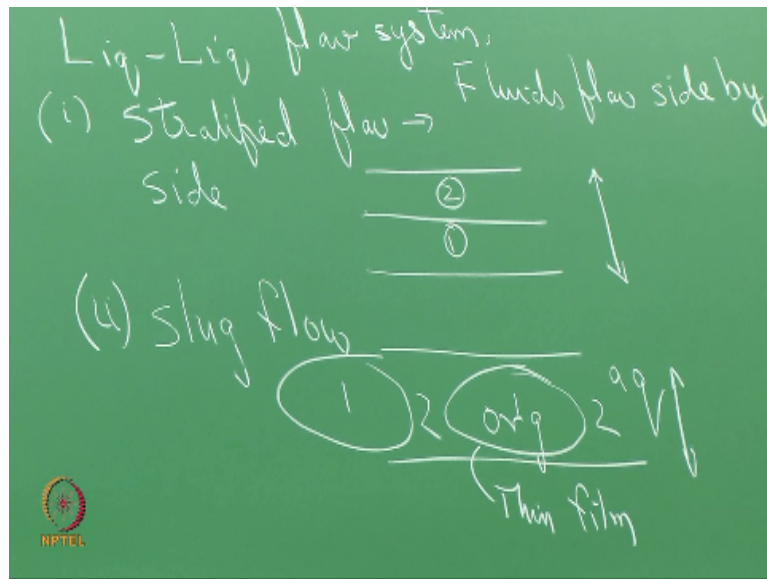 Liq-Liq flow system.
(i) Stratified flow → Fluids flow side by
side
②
①
(ii) Slug flow
1 2 org 2 aq
Thin film
NPTEL